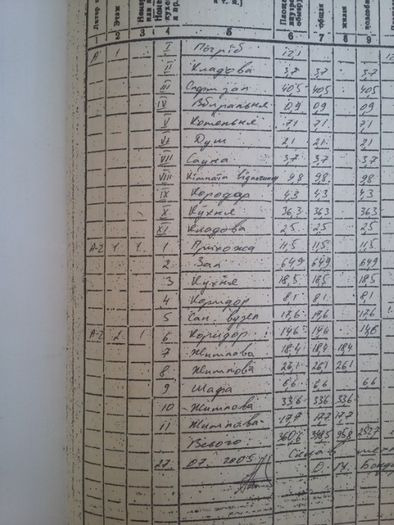 Этаж
2 3 4 5 6 7 8 9
1 I Погріб 12,1
II Кладова 3,7 3,7 3,7
III Спорт зал 40,5 40,5 40,5
IV Вбиральня 0,9 0,9 0,9
V Котельня 7,1 7,1 7,1
VI Душ 2,1 2,1 2,1
VII Сауна 3,7 3,7 3,7
VIII Кімната відпочинку 9,8 9,8 9,8
IX Коридор 4,3 4,3 4,3
X Кухня 36,3 36,3 36,3
XI Кладова 2,5 2,5 2,5
А-2 1 1 1 Прихожа 11,5 11,5 11,5
2 Зал 64,9 64,9 64,9
3 Кухня 18,5 18,5 18,5
4 Коридор 8,1 8,1 8,1
5 Сан. вузел 17,6 17,6
А-2 2 1 6 Коридор 14,6 14,6 14,6
7 Житлова 18,4 18,4 18,4
8 Житлова 26,1 26,1 26,1
9 Шафа 6,6 6,6 6,6
10 Житлова 33,6 33,6 33,6
11 Житлова 17,7 17,7 17,7
Всього
27. 07. 2005